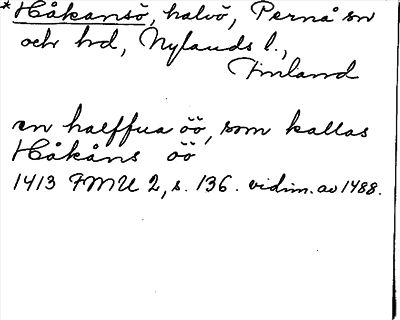 *Håkansö, halvö, Pernå sn
och hd, Nylands l.,
Finland
en halffua öö, som kallas
Håkåns öö
1413 FMU 2, s. 136. vidim. av 1488.